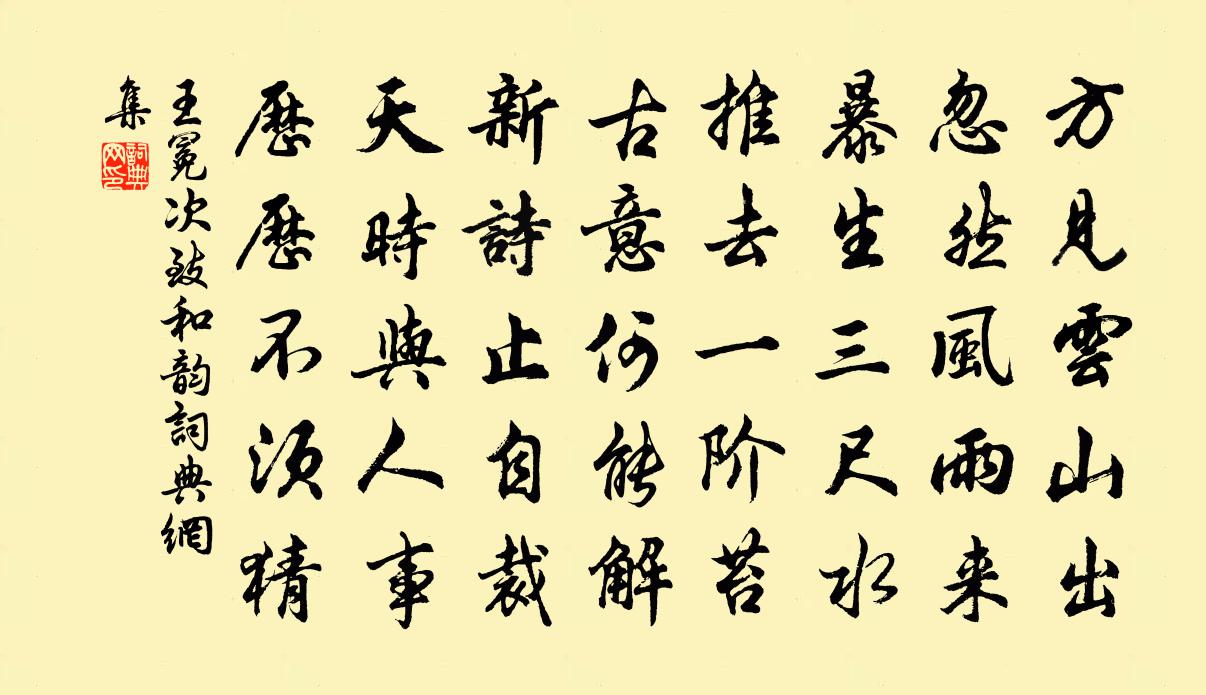 方見雲山出
忽然風雨来
暴生三尺水
推去一阶苔
古意何能解
新詩止自裁
天時與人事
歷歷不須猜
王冕次致和韵詞典網
集
詞典
网印